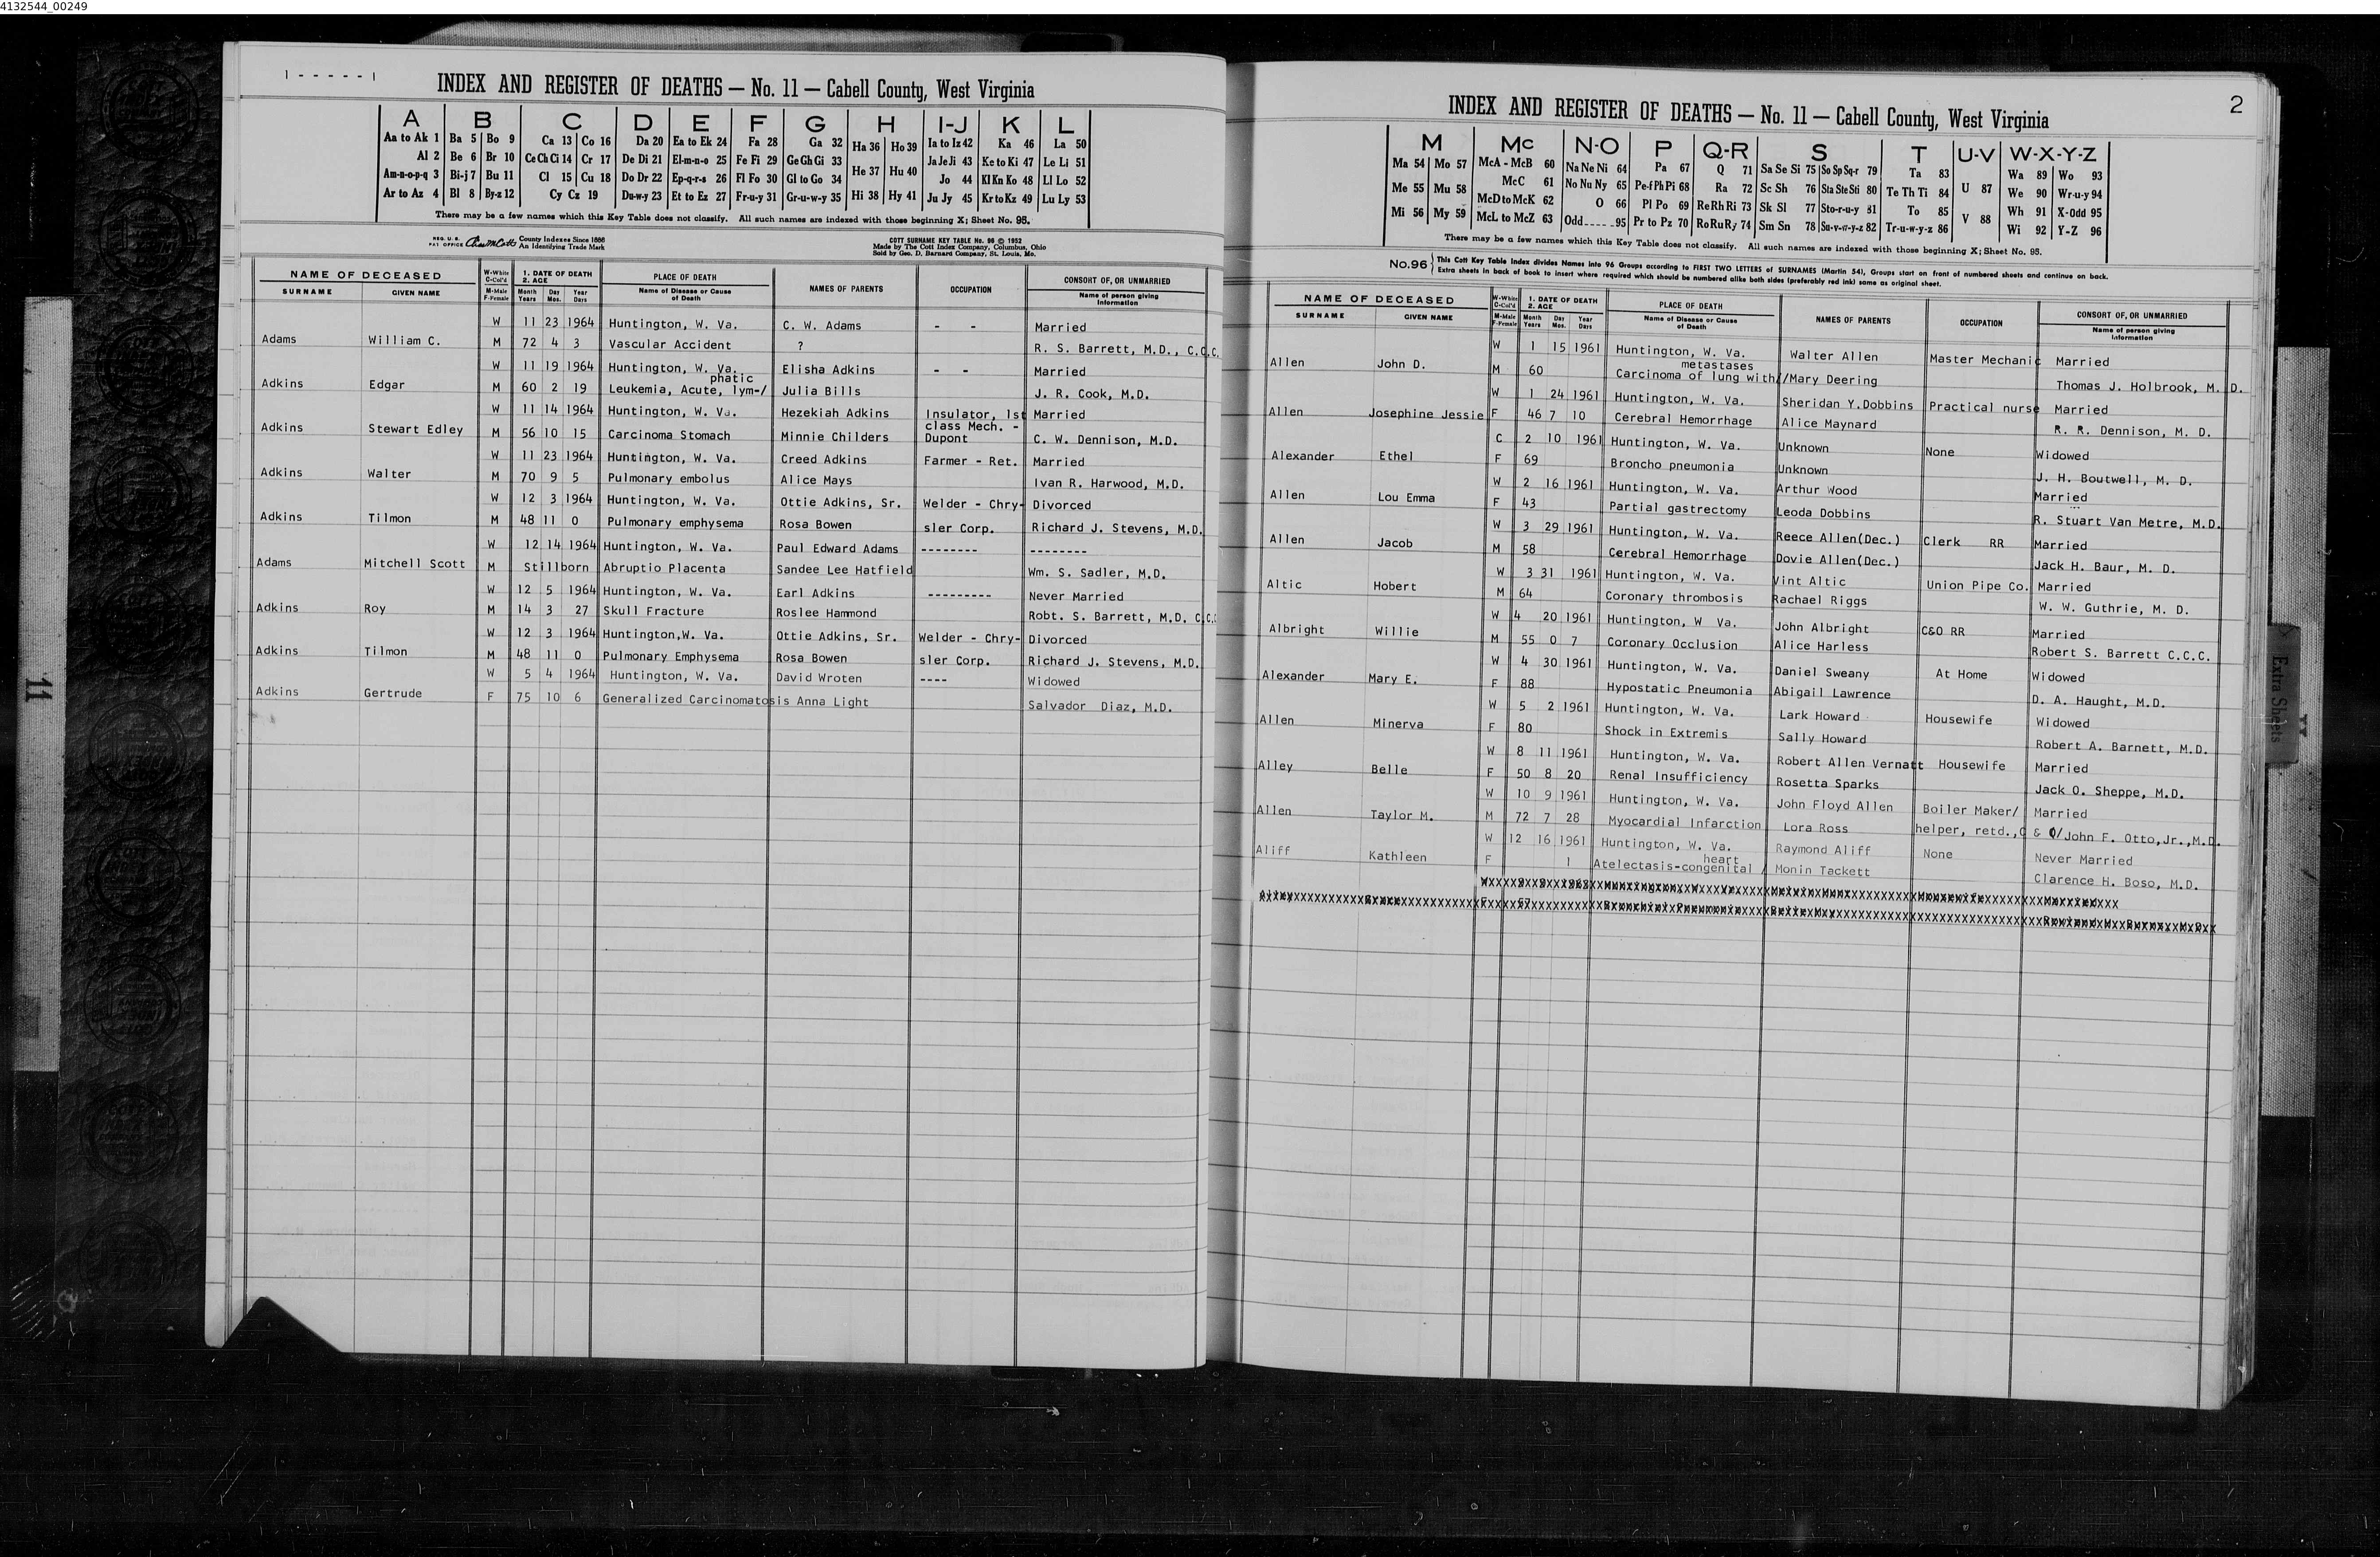 4132544_00249
1 - - - - - 1
INDEX AND REGISTER OF DEATHS — No. 11 — Cabell County, West Virginia
A B C D E F G H I-J K L
Aa to Ak 1 Ba 5 Bo 9 Ca 13 Co 16 Da 20 Ea to Ek 24 Fa 28 Ga 32 Ha 36 Ho 39 Ia to Iz 42 Ka 46 La 50
Al 2 Be 6 Br 10 Ce Ch Ci 14 Cr 17 De Di 21 El-m-n-o 25 Fe Fi 29 Ge Gh Gi 33 Ja Je Ji 43 Ke to Ki 47 Le Li 51
Am-n-o-p-q 3 Bi-j 7 Bu 11 Cl 15 Cu 18 Do Dr 22 Ep-q-r-s 26 Fl Fo 30 Gl to Go 34 He 37 Hu 40 Jo 44 Kl Kn Ko 48 Ll Lo 52
Ar to Az 4 Bl 8 By-z 12 Cy Cz 19 Du-w-y 23 Et to Ez 27 Fr-u-y 31 Gr-u-w-y 35 Hi 38 Hy 41 Ju Jy 45 Kr to Kz 49 Lu Ly 53
There may be a few names which this Key Table does not classify. All such names are indexed with those beginning X; Sheet No. 95.
REG. U. S. PAT. OFFICE County Indexes Since 1888
An Identifying Trade Mark
COTT SURNAME KEY TABLE No. 96 © 1952
Made by The Cott Index Company, Columbus, Ohio
Sold by Geo. D. Barnard Company, St. Louis, Mo.
NAME OF DECEASED W-White C-Col'd 1. DATE OF DEATH 2. AGE PLACE OF DEATH NAMES OF PARENTS OCCUPATION CONSORT OF, OR UNMARRIED
SURNAME GIVEN NAME M-Male F-Female Month Years Day Mos. Year Days Name of Disease or Cause of Death Name of person giving Information
W 11 23 1964 Huntington, W. Va. C. W. Adams - - Married
Adams William C. M 72 4 3 Vascular Accident ? R. S. Barrett, M.D., C.C.C.
W 11 19 1964 Huntington, W. Va. Elisha Adkins - - Married
phatic
Adkins Edgar M 60 2 19 Leukemia, Acute, lym-/ Julia Bills J. R. Cook, M.D.
W 11 14 1964 Huntington, W. Va. Hezekiah Adkins Insulator, 1st Married
class Mech. -
Adkins Stewart Edley M 56 10 15 Carcinoma Stomach Minnie Childers Dupont C. W. Dennison, M.D.
W 11 23 1964 Huntington, W. Va. Creed Adkins Farmer - Ret. Married
Adkins Walter M 70 9 5 Pulmonary embolus Alice Mays Ivan R. Harwood, M.D.
W 12 3 1964 Huntington, W. Va. Ottie Adkins, Sr. Welder - Chry- Divorced
Adkins Tilmon M 48 11 0 Pulmonary emphysema Rosa Bowen sler Corp. Richard J. Stevens, M.D.
W 12 14 1964 Huntington, W. Va. Paul Edward Adams -------- --------
Adams Mitchell Scott M Stillborn Abruptio Placenta Sandee Lee Hatfield Wm. S. Sadler, M.D.
W 12 5 1964 Huntington, W. Va. Earl Adkins --------- Never Married
Adkins Roy M 14 3 27 Skull Fracture Roslee Hammond Robt. S. Barrett, M.D. C.C.C
W 12 3 1964 Huntington,W. Va. Ottie Adkins, Sr. Welder - Chry- Divorced
Adkins Tilmon M 48 11 0 Pulmonary Emphysema Rosa Bowen sler Corp. Richard J. Stevens, M.D.
W 5 4 1964 Huntington, W. Va. David Wroten ---- Widowed
Adkins Gertrude F 75 10 6 Generalized Carcinomatosis Anna Light Salvador Diaz, M.D.
11
2
INDEX AND REGISTER OF DEATHS — No. 11 — Cabell County, West Virginia
M Mc N-O P Q-R S T U-V W-X-Y-Z
Ma 54 Mo 57 McA - McB 60 Na Ne Ni 64 Pa 67 Q 71 Sa Se Si 75 So Sp Sq-r 79 Ta 83 Wa 89 Wo 93
Me 55 Mu 58 McC 61 No Nu Ny 65 Pe-f Ph Pi 68 Ra 72 Sc Sh 76 Sta Ste Sti 80 Te Th Ti 84 U 87 We 90 Wr-u-y 94
McD to McK 62 O 66 Pl Po 69 Re Rh Ri 73 Sk Sl 77 Sto-r-u-y 81 To 85 Wh 91 X-Odd 95
Mi 56 My 59 McL to McZ 63 Odd ----- 95 Pr to Pz 70 Ro Ru Ry 74 Sm Sn 78 Su-v-w-y-z 82 Tr-u-w-y-z 86 V 88 Wi 92 Y-Z 96
There may be a few names which this Key Table does not classify. All such names are indexed with those beginning X; Sheet No. 95.
No.96 This Cott Key Table Index divides Names into 96 Groups according to FIRST TWO LETTERS of SURNAMES (Martin 54), Groups start on front of numbered sheets and continue on back.
Extra sheets in back of book to insert where required which should be numbered alike both sides (preferably red ink) same as original sheet.
NAME OF DECEASED W-White C-Col'd 1. DATE OF DEATH 2. AGE PLACE OF DEATH NAMES OF PARENTS OCCUPATION CONSORT OF, OR UNMARRIED
SURNAME GIVEN NAME M-Male F-Female Month Years Day Mos. Year Days Name of Disease or Cause of Death Name of person giving Information
W 1 15 1961 Huntington, W. Va. Walter Allen Master Mechanic Married
metastases
Allen John D. M 60 Carcinoma of lung with//Mary Deering Thomas J. Holbrook, M. D.
W 1 24 1961 Huntington, W. Va. Sheridan Y.Dobbins Practical nurse Married
Allen Josephine Jessie F 46 7 10 Cerebral Hemorrhage Alice Maynard R. R. Dennison, M. D.
C 2 10 1961 Huntington, W. Va. Unknown None Widowed
Alexander Ethel F 69 Broncho pneumonia Unknown J. H. Boutwell, M. D.
W 2 16 1961 Huntington, W. Va. Arthur Wood Married
Allen Lou Emma F 43 Partial gastrectomy Leoda Dobbins R. Stuart Van Metre, M.D.
W 3 29 1961 Huntington, W. Va. Reece Allen(Dec.) Clerk RR Married
Allen Jacob M 58 Cerebral Hemorrhage Dovie Allen(Dec.) Jack H. Baur, M. D.
W 3 31 1961 Huntington, W. Va. Vint Altic Union Pipe Co. Married
Altic Hobert M 64 Coronary thrombosis Rachael Riggs W. W. Guthrie, M. D.
W 4 20 1961 Huntington, W Va. John Albright C&O RR Married
Albright Willie M 55 0 7 Coronary Occlusion Alice Harless Robert S. Barrett C.C.C.
W 4 30 1961 Huntington, W. Va. Daniel Sweany At Home Widowed
Alexander Mary E. F 88 Hypostatic Pneumonia Abigail Lawrence D. A. Haught, M.D.
W 5 2 1961 Huntington, W. Va. Lark Howard Housewife Widowed
Allen Minerva F 80 Shock in Extremis Sally Howard Robert A. Barnett, M.D.
W 8 11 1961 Huntington, W. Va. Robert Allen Vernatt Housewife Married
Alley Belle F 50 8 20 Renal Insufficiency Rosetta Sparks Jack O. Sheppe, M.D.
W 10 9 1961 Huntington, W. Va. John Floyd Allen Boiler Maker/ Married
Allen Taylor M. M 72 7 28 Myocardial Infarction Lora Ross helper, retd.,C & O/John F. Otto,Jr.,M.D.
W 12 16 1961 Huntington, W. Va. Raymond Aliff None Never Married
heart
Aliff Kathleen F 1 Atelectasis-congenital / Monin Tackett Clarence H. Boso, M.D.
Extra Sheets